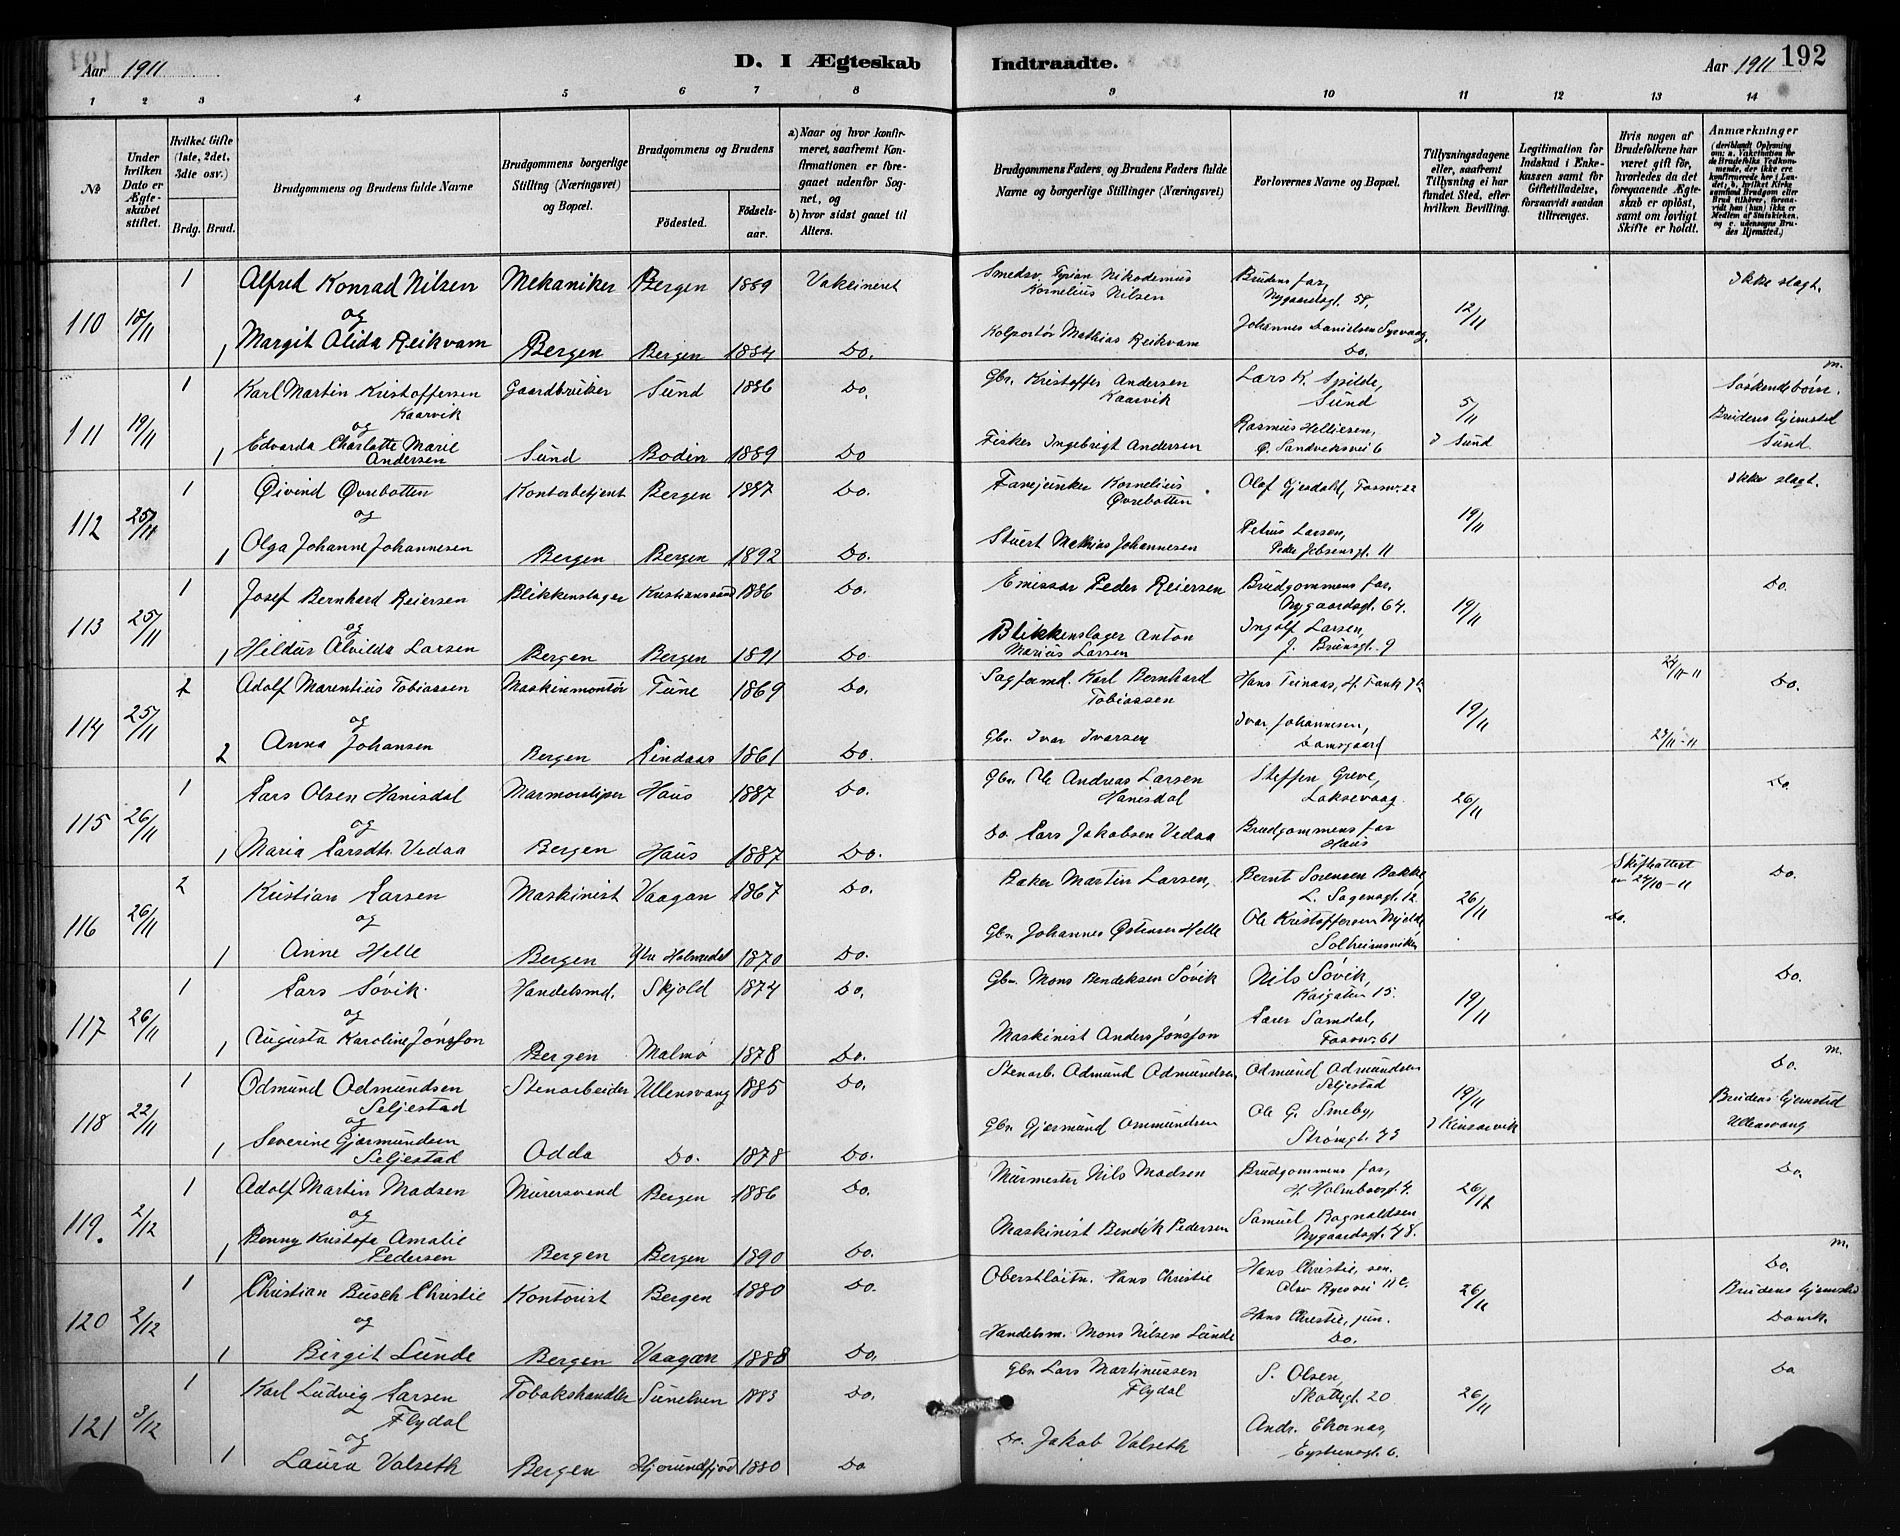 Aar 1911
D. I Ægteskab Indtraadte.
Aar 1911 192
1 2 3 4 5 6 7 8 9 10 11 12 13 14
No
Under hvilken Dato er Ægteskabet stiftet.
Hvilket Gifte (1ste, 2det, 3die osv.)
Brdg. Brud.
Brudgommens og Brudens fulde Navne
Brudgommens borgerlige Stilling (Næringsvei) og Bopæl.
Brudgommens og Brudens
Fødested. Fødselsaar.
a) Naar og hvor konfirmeret, saafremt Konfirmationen er foregaaet udenfor Sognet, og
b) hvor sidst gaaet til Alters.
Brudgommens Faders og Brudens Faders fulde Navne og borgerlige Stillinger (Næringsvei)
Forlovernes Navne og Bopæl.
Tillysningsdagene eller, saafremt Tillysning ei har fundet Sted, efter hvilken Bevilling.
Legitimation for Indskud i Enkekassen samt for Giftetilladelse, forsaavidt saadan tiltrænges.
Hvis nogen af Brudefolkene har været gift før, hvorledes da det foregaaende Ægteskab er opløst, samt om lovligt Skifte er holdt.
Anmærkninger
110 18/11 1 Alfred Konrad Nilsen Mekaniker Bergen 1889 Vakcineret Smedsv. Kornelius Nilsen Brudens far, Nygaardsgt. 58, 12/11 Ikke slægt.
og
1 Margit Alida Reikvam Bergen Bergen 1884 Do. Kolportør Mathias Reikvam Johannes Danielsen Do.
111 19/11 1 Karl Martin Kristoffersen Kaarvik Gaardbruker Sund 1886 Do. Gbr. Kristoffer Andersen Kaarvik Lars K. Spilde, Sund 5/11 i Sund m. Søskendebørn.
og
1 Edvarda Charlotte Marie Andersen Sund Bodin 1889 Do Fisker Ingebrigt Andersen Rasmus Helliesen, Ø. Sandviksvei 6 Brudens hjemsted Sund
112 25/11 1 Øivind Øvrebotten Kontorbetjent Bergen 1887 Do. Fanejunker Kornelius Øvrebotten Olaf Gjesdahl, Fossw. 22 19/11 Ikke slægt.
og
1 Olga Johanne Johannesen Bergen Bergen 1892 Do. Stuert Mathias Johannesen Petrus Larsen, Peder Jebsensgt. 11
113 25/11 1 Josef Bernhard Reiersen Blikkenslager Kristianssand 1886 Do. Emissær Peder Reiersen Brudgommens far, Nygaardsgt. 64. 19/11 Do.
og
1 Hildur Alvilda Larsen Bergen Bergen 1891 Do. Blikkenslager Anton Marius Larsen Ingolf Larsen, J. Brunsgt. 9
114 25/11 2 Adolf Marentius Tobiassen Maskinmontør Tune 1869 Do. Sagformd. Karl Bernhard Tobiassen Hans 19/11 24/11-11 Do.
og
2 Anna Johansen Bergen Lindaas 1861 Do. Gbr. Ivar Ivarsen Ivar Johannesen, Damsgaard 23/11-11
115 26/11 1 Lars Olsen Hanisdal Marmorsliper Haus 1887 Do. Gbr. Ole Andreas Larsen Hanisdal Steffen Greve, Laksevaag. 26/11 Do.
og
1 Maria Larsdtr. Vedaa Bergen Haus 1887 Do. Do. Lars Jakobsen Vedaa Brudgommens far Haus
116 26/11 2 Kristian Larsen Maskinist Vaagan 1867 Do. Baker Martin Larsen, Bernt Sørensen Bakke, L. Sagensgt. 12 26/11 Skifteattest 24/10-11 Do.
og
1 Anne Helle Bergen Ytre Holmedal 1870 Do. Gbr. Johannes Østensen Helle Ole Kristoffersen Solheimsviken Do.
117 26/11 1 Lars Søvik. Handelsmd. Skjold 1874 Do. Gbr. Mons Bendiksen Søvik Nils Søvik, Kaigaten 15. 19/11 Do.
og
1 Augusta Karoline Jónsson Bergen Malmø 1878 Do. Maskinist Anders Jónsson Lærer Samdal, Fossw. 61
118 22/11 1 Odmund Odmundsen Seljestad Stenarbeider Ullensvang 1885 Do. Stenarb. Odmund Odmundsen Odmund Odmundsen Seljestad 19/11 i Kinsarvik m. Do.
og
1 Severine Gjærmundsen Seljestad Odda Do. 1878 Do. Gbr. Gjærmund Ommundsen Ole G. Smeby, Strømgt. 73 Brudens hjemsted Ullensvang
119. 2/12 1 Adolf Martin Madsen Murersvend Bergen 1886 Do. Murmester Nils Madsen Brudgommens far, H. Holmboesgt. 4. 26/12 Do.
og
1 Benny Kristofa Amalie Pedersen Bergen Bergen 1890 Do. Maskinist Bendik Pedersen Samuel Ragnaldsen Nygaardsgt. 78.
120 2/12 1 Christian Busch Christie Kontorist Bergen 1880 Do. Oberstløitn. Hans Christie Hans Christie, sen. Olav Ryesvei 11c. 26/11 m. Do.
og
1 Birgit Lunde Bergen Vaagan 1888 Do. Handelsm. Mons Nilsen Lunde Hans Christie, jun. Do. Brudens hjemsted Domk.
121 3/12 1 Karl Ludvig Larsen Flydal Tobakshandler Sunelven 1883 Do. Gbr. Lars Martinussen Flydal S. Olsen, Skottegt. 20 26/11 Do
og
1 Laura Valseth Bergen Hjørundfjord 1880 Do Do. Jakob Valseth Andr. Ekornæs, Eystensgt. 6.